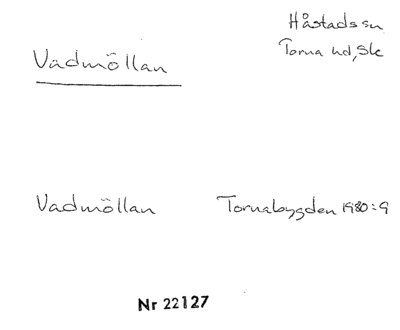 Håstads sn
Torna hd, Sk
Vadmöllan
Vadmöllan Tornabygden 1980:9
Nr 22127